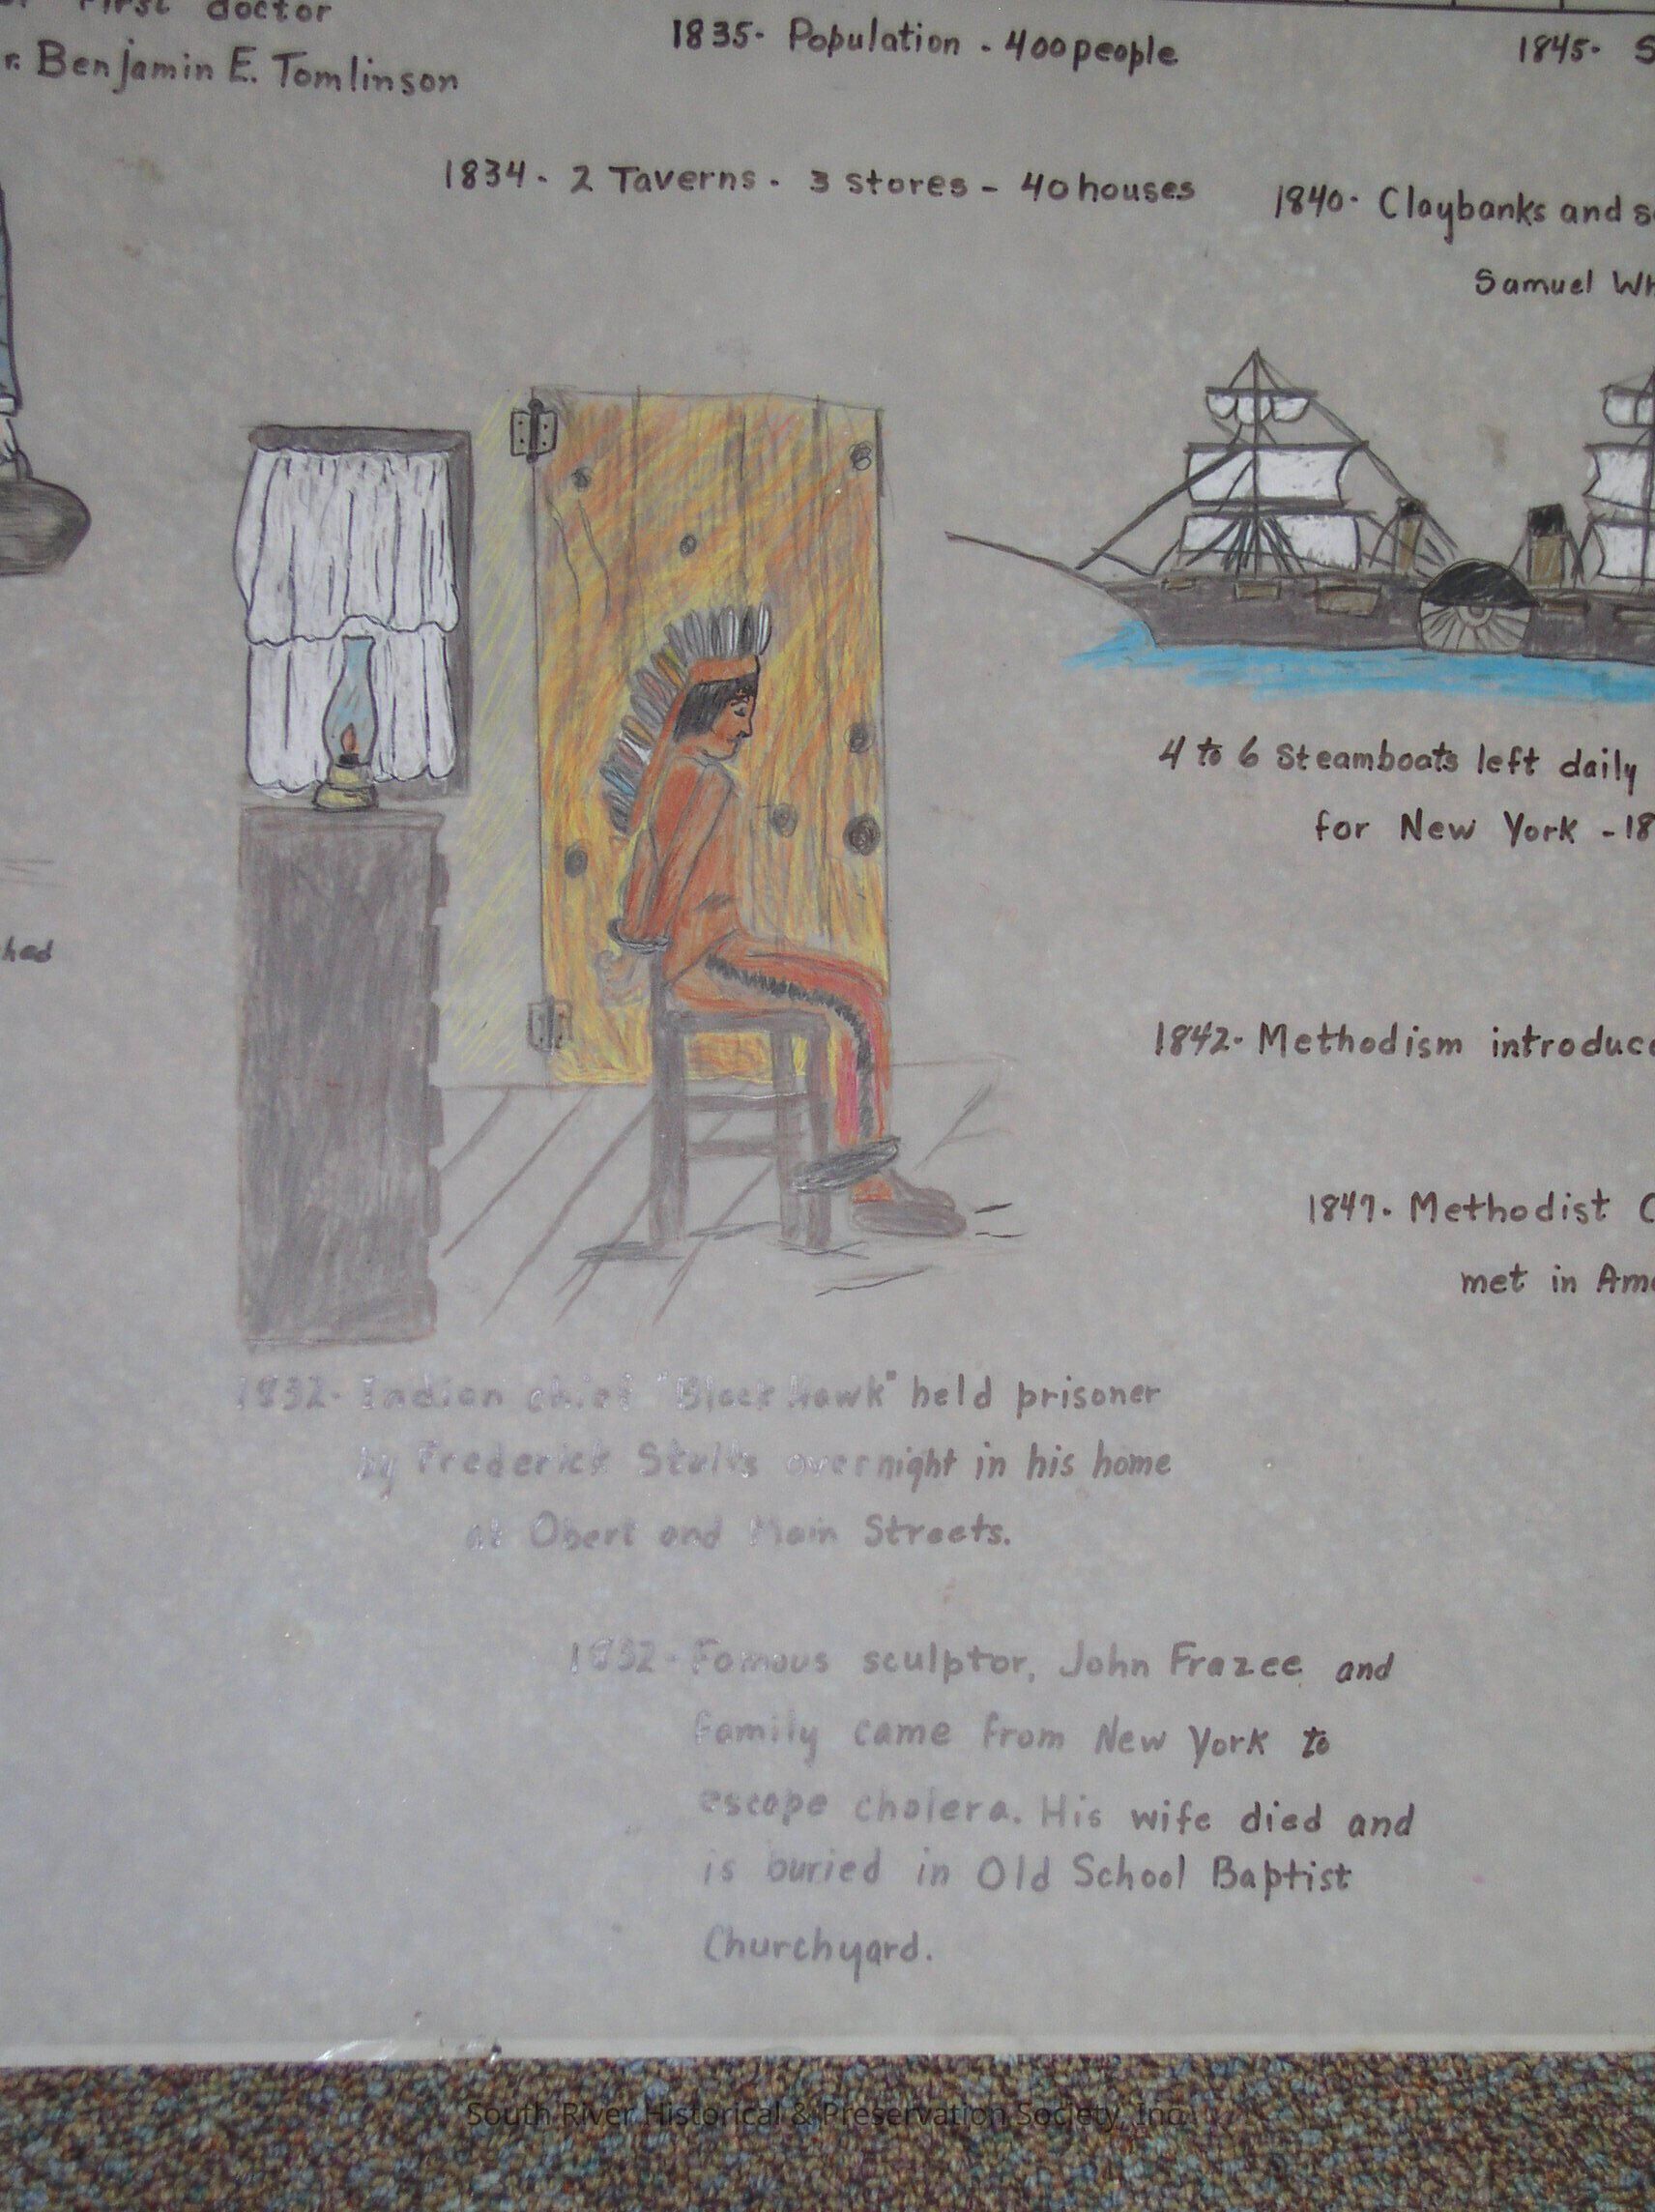 First doctor
r. Benjamin E. Tomlinson
1835- Population - 400 people
1845- S
1834- 2 Taverns - 3 stores - 40 houses
1840- Claybanks and s
Samuel Wh
4 to 6 Steamboats left daily
for New York - 18
hed
1842- Methodism introduce
1847- Methodist C
met in Am
1832- Indian chief "Black Hawk" held prisoner
by Frederick Stults overnight in his home
at Obert and Main Streets.
1832- Famous sculptor, John Frazee and
family came from New York to
escape cholera. His wife died and
is buried in Old School Baptist
Churchyard.
South River Historical & Preservation Society, Inc.